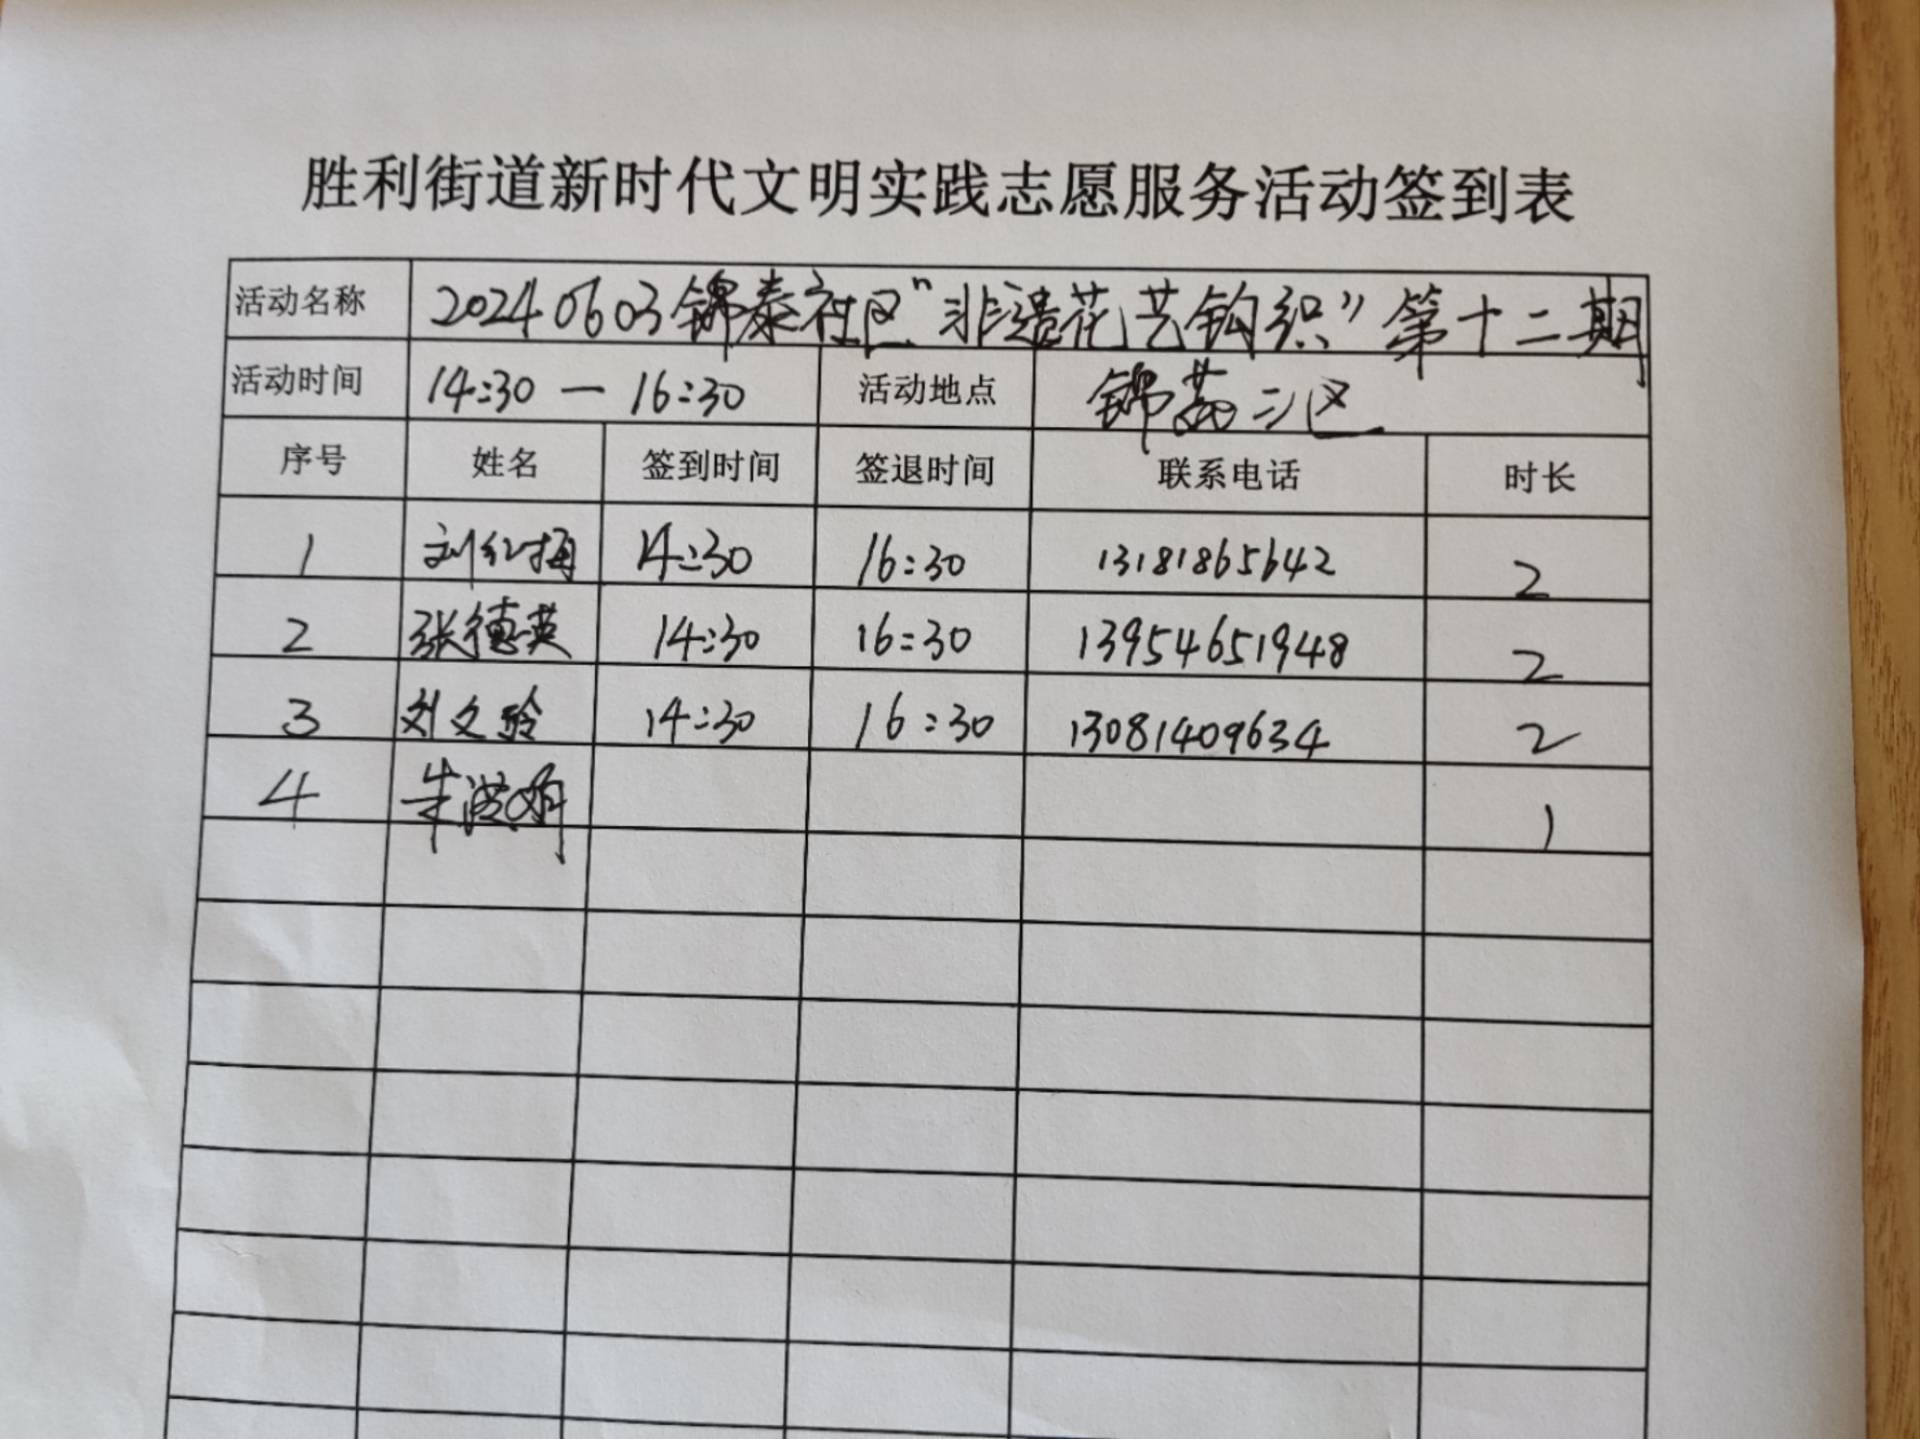 胜利街道新时代文明实践志愿服务活动签到表
活动名称 20240603锦泰社区"非遗花艺钩织"第十二期
活动时间 14:30 — 16:30 活动地点 锦荔三区
序号 姓名 签到时间 签退时间 联系电话 时长
1 刘红梅 14:30 16:30 13181865642 2
2 张德英 14:30 16:30 13954651948 2
3 刘文玲 14:30 16:30 13081409634 2
4 朱 1